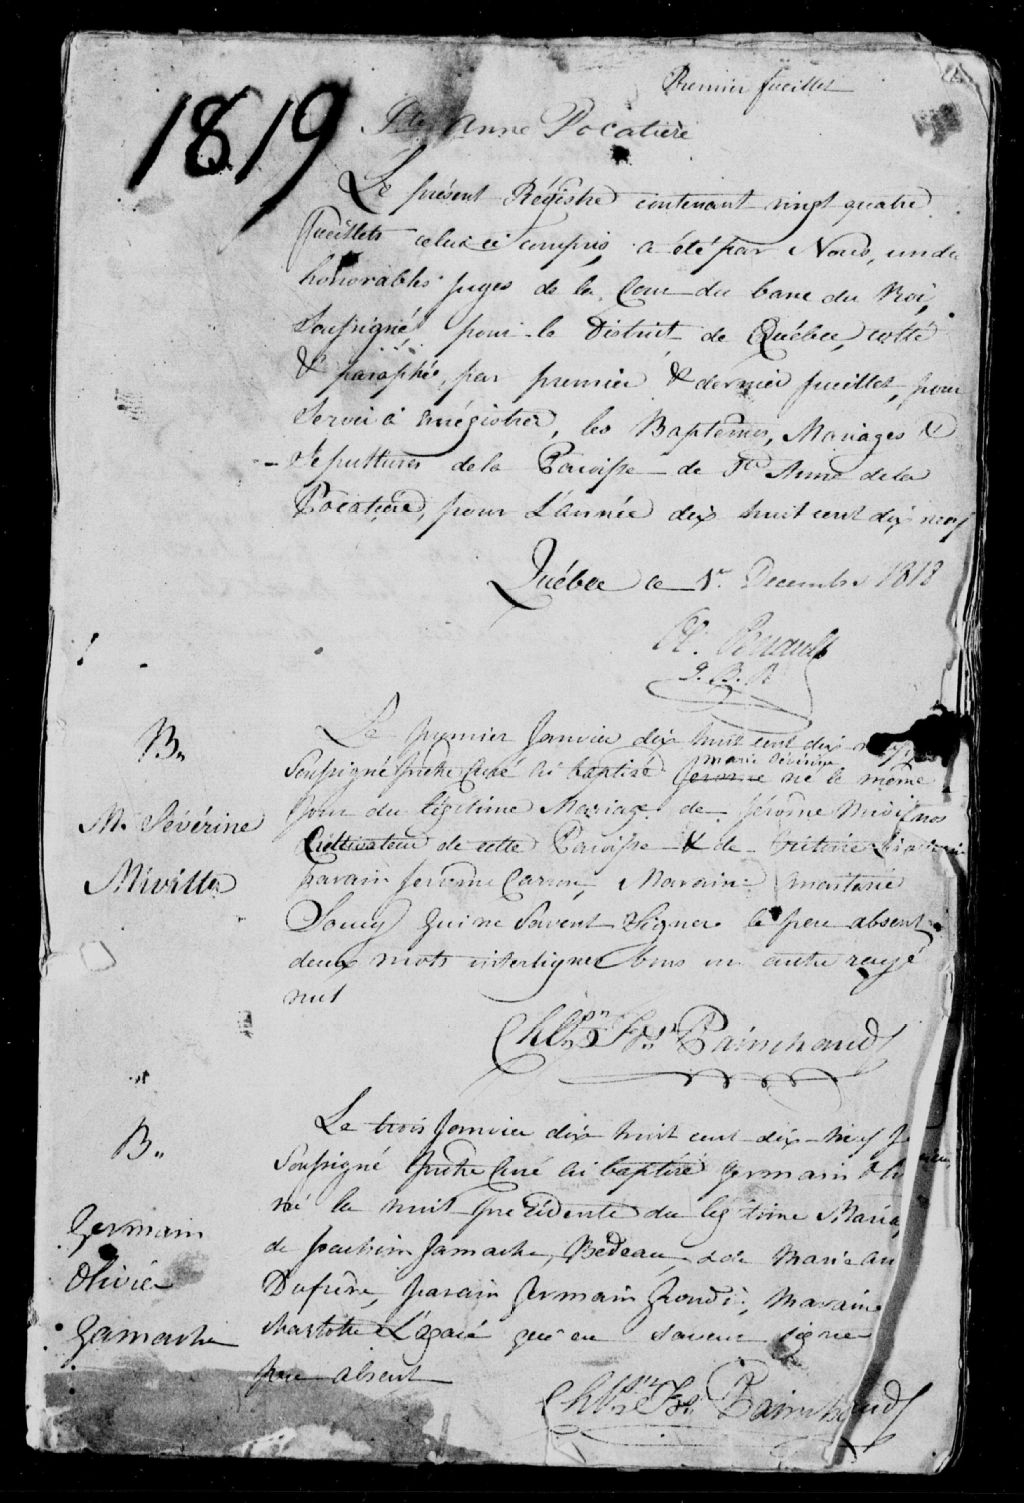 Premier fueillet
1819
Ste Anne Pocatière
Le présent Régistre contenant vingt quatre
fueillets celui ci compris, a été par Nous, un de
honorables juges de la Cour du banc du Roi,
Soussigné, pour le District de Québec, cotté
& paraphé, par premier & dernier fueillet, pour
Servir à enrégistrer, les Baptemes, Mariages &
Sepultures de la Paroisse de Ste Anne de la
Pocatière, pour L'année dix huit cent dix neuf
Québec ce 1r. Decembre 1818
Perrault
J. B. R
B..
M. Sévérine
Miville
Le premier Janvier dix huit cent dix
marie Sévérine
Soussigné prêtre Curé ai baptisé né le même
jour du légitime Mariage de Jérôme
Cultivateur de cette Paroisse & de
parain Jerôme Caron, Maraine
Soucy qui ne Savent Signer le pere absent
deux mots interlignés bons un autre rayé
nul
Chls Frs Painchaud
B..
Germain
Olivier
Gamache
Le trois Janvier dix huit cent dix-neuf
Soussigné prêtre Curé ai baptisé Germain
né la nuit précédente du légitime
de Gamache, Bedeau, & de Marie
Dufrène, parain Germain, Maraine
signer
pere absent
Chls Frs Painchaud